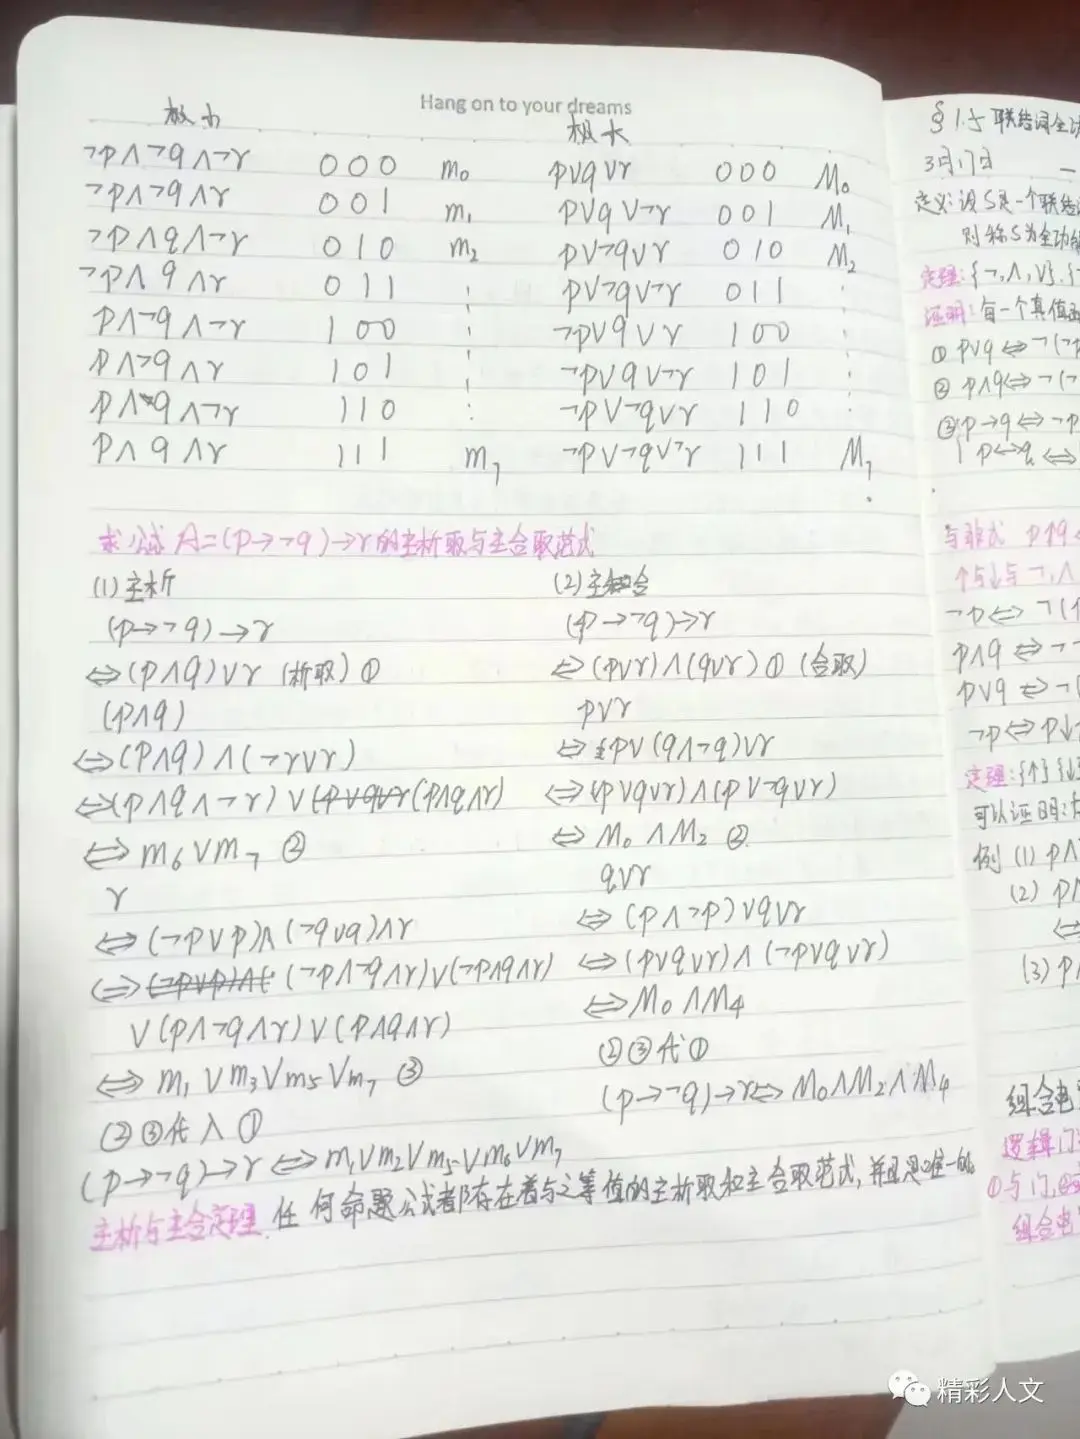 Hang on to your dreams
极小 极大
¬p∧¬q∧¬r 000 m₀ p∨q∨r 000 M₀
¬p∧¬q∧r 001 m₁ p∨q∨¬r 001 M₁
¬p∧q∧¬r 010 m₂ p∨¬q∨r 010 M₂
¬p∧q∧r 011 ⋮ p∨¬q∨¬r 011 ⋮
p∧¬q∧¬r 100 ¬p∨q∨r 100
p∧¬q∧r 101 ¬p∨q∨¬r 101
p∧q∧¬r 110 ¬p∨¬q∨r 110
p∧q∧r 111 m₇ ¬p∨¬q∨¬r 111 M₇
求公式 A=(p→¬q)→r的主析取与主合取范式
(1)主析
(p→¬q)→r
⇔(p∧q)∨r (析取) ①
(p∧q)
⇔(p∧q)∧(¬r∨r)
⇔(p∧q∧¬r)∨(p∧q∧r)
⇔m₆∨m₇ ②
r
⇔(¬p∨p)∧(¬q∨q)∧r
⇔(¬p∧¬q∧r)∨(¬p∧q∧r)
∨(p∧¬q∧r)∨(p∧q∧r)
⇔m₁∨m₃∨m₅∨m₇ ③
②③代入①
(p→¬q)→r⇔m₁∨m₂∨m₅∨m₆∨m₇
(2)主合
(p→¬q)→r
⇔(p∨r)∧(q∨r)① (合取)
p∨r
⇔p∨(q∧¬q)∨r
⇔(p∨q∨r)∧(p∨¬q∨r)
⇔M₀∧M₂ ②
q∨r
⇔(p∧¬p)∨q∨r
⇔(p∨q∨r)∧(¬p∨q∨r)
⇔M₀∧M₄
②③代①
(p→¬q)→r⇔M₀∧M₂∧M₄
主析与主合定理.任何命题公式都存在着与之等值的主析取和主合取范式,并且是唯一的
§1.5联结词全功
3月17日 一
定义:设S是一个联结
则称S为全功能
定理:{¬,∧,∨}.{¬
证明:每一个真值函
①p∨q⇔¬(¬p
②p∧q⇔¬(¬
③p→q⇔¬p
p↔q⇔
与非式 p↑q⇔
↑与↓与¬,∧
¬p⇔¬(
p∧q⇔¬
p∨q⇔¬(
¬p⇔p↓
定理:{↑}{↓}
可以证明:
例(1)p∧
(2)p∧
⇔
(3)p∧
组合电
逻辑门
①与门,
组合电
精彩人文